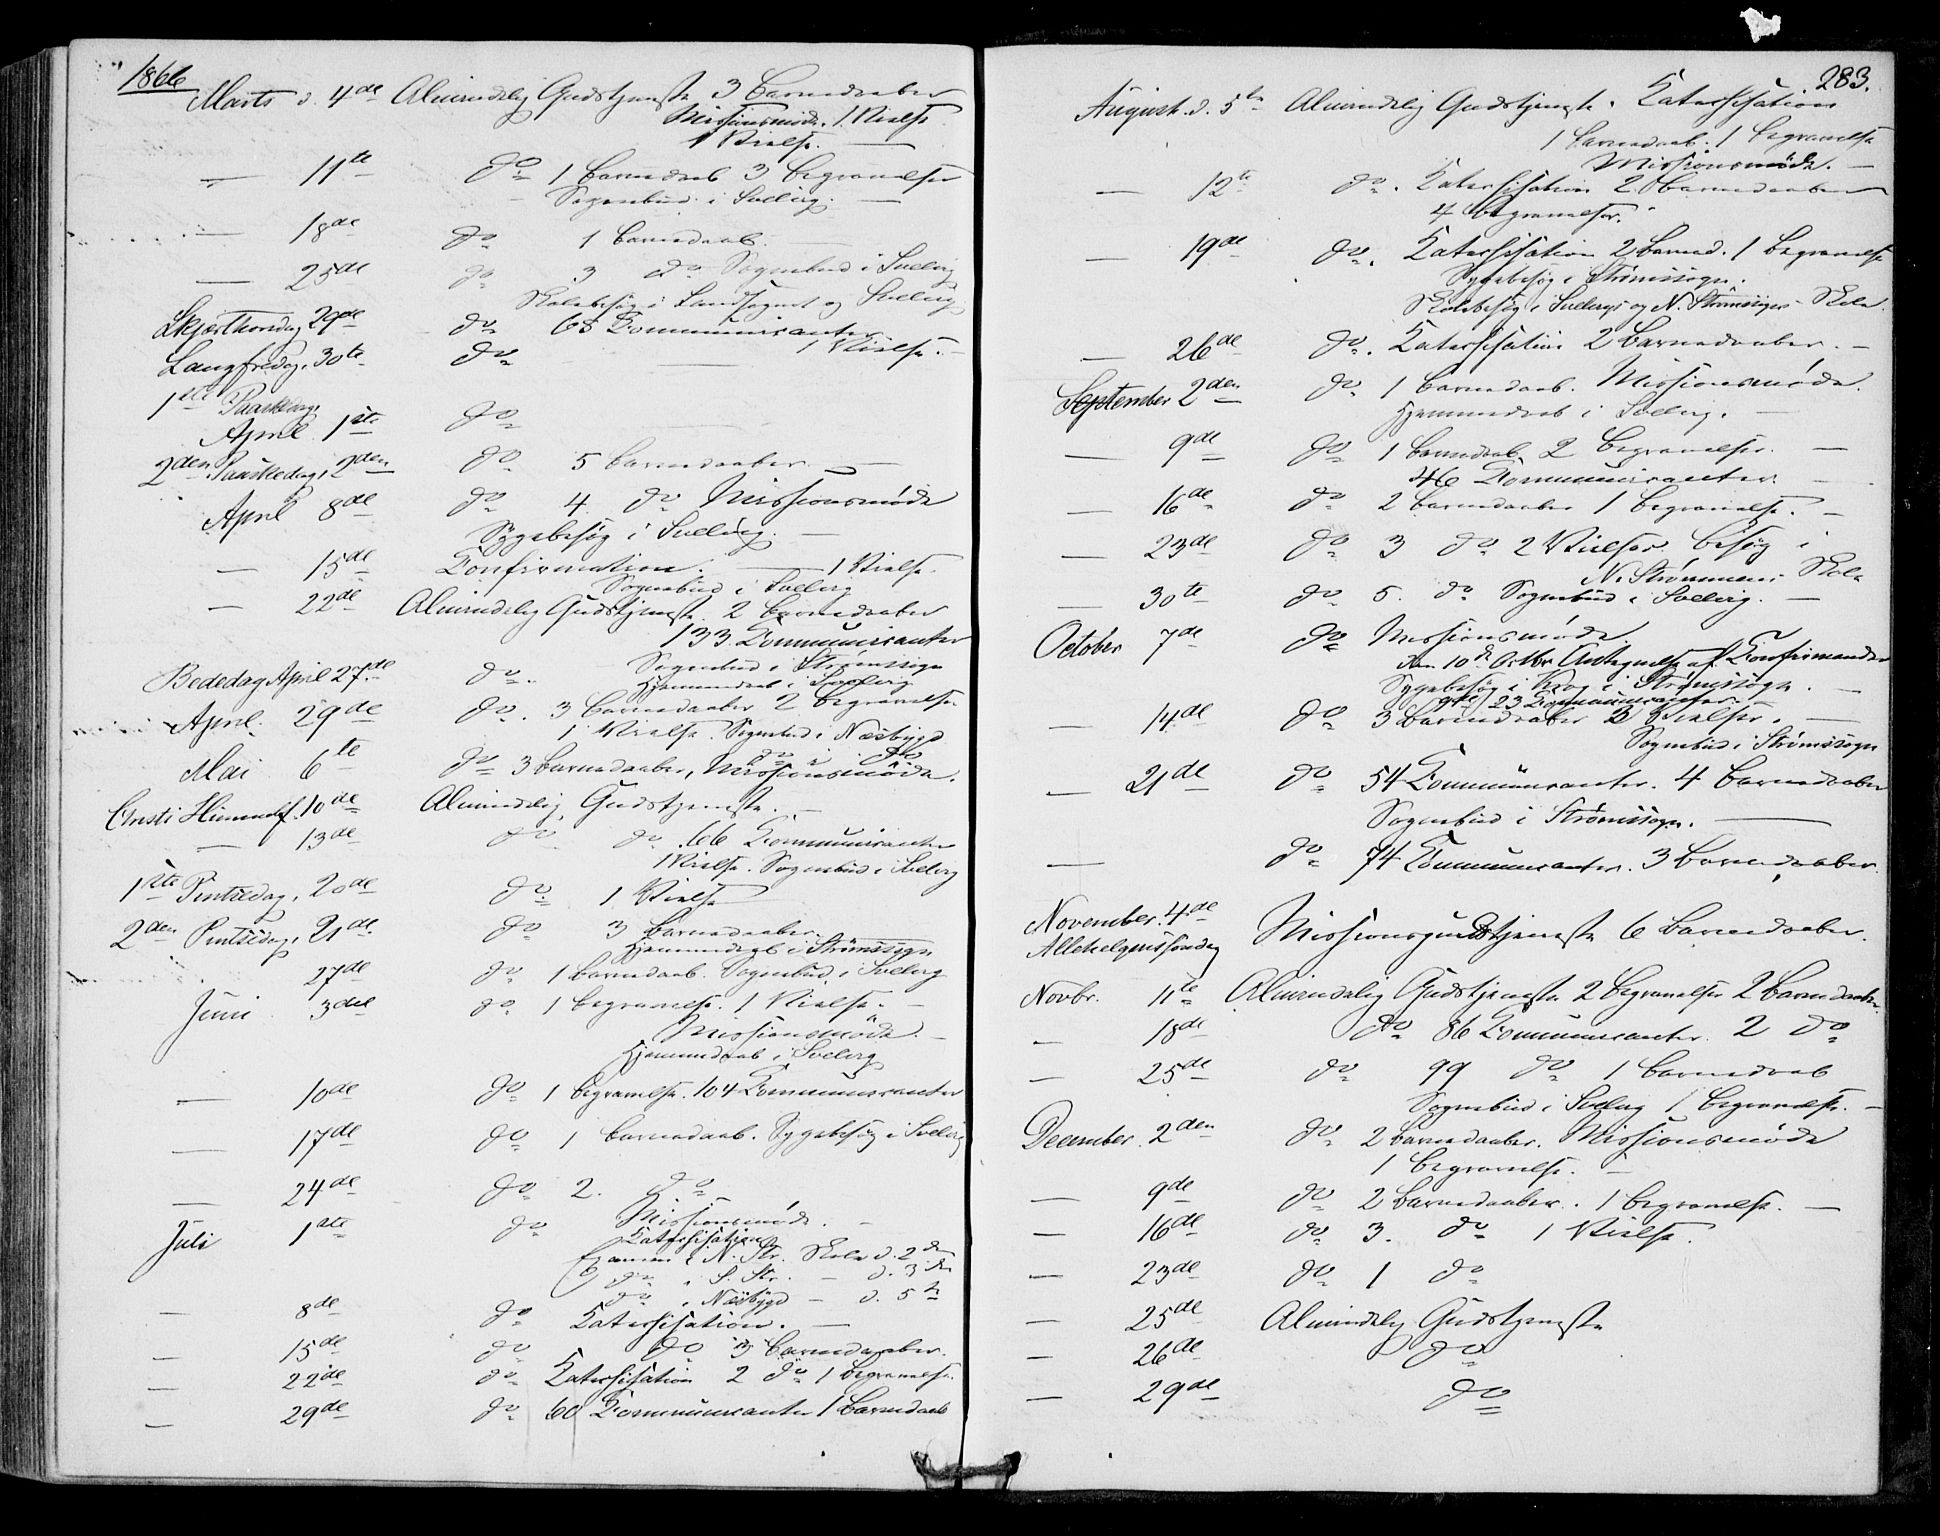 1866
Marts d. 4de Almindelig Gudstjeneste 3 Barnedaaber
Missionsmøde. 1 Vielse
1 Vielse. —
— 11te do 1 Barnedaab 3 Begravelser
Sognebud i Svelvig. —
— 18de do 1 Barnedaab.
— 25de do 3 do Sognebud i Svelvig
Skolebesøg i Landsognet og Svelvig
Skjærthorsdag 29de do 68 Communicanter
1 Vielse. —
Langfredag, 30te do —
1ste Paaskedag,
April 1ste do
2den Paaskedag, 2den do 5 Barnedaaber. —
April 8de do 4 do Missionsmøde
Sygebesøg i Svelvig. —
— 15de Confirmation. — 1 Vielse.
Sognebud i Svelvig
— 22de Almindelig Gudstjeneste. 2 Barnedaaber
133 Communicanter
Sognebud i Strømssogn
Bededag April 27de do. Hjemmedaab i Svelvig
April. 29de do. 3 Barnedaaber 2 Begravelser
1 Vielse. Sognebud i Næsbygd
do i do
Mai 6te do 3 Barnedaaber, Missionsmøde.
Christi Himmelf. 10de Almindelig Gudstjeneste. —
— 13de do do. 66 Communicanter
1 Vielse. Sognebud i Svelvig
1ste Pintsedag, 20de do. 1 Vielse
2den Pintsedag, 21de. do 3 Barnedaaber.
Hjemmedaab i Strømssogn
27de do 1 Barnedaab. Sognebud i Svelvig
Juni 3die do 1 Begravelse. 1 Vielse. —
Missionsmøde. —
Hjemmedaab i Svelvig
— 10de do 1 Begravelse. 104 Communicanter
— 17de do 1 Barnedaab. Sygebesøg i Svelvig
— 24de do 2. do
Missionsmøde. —
Juli 1ste do Katechisation
Examen i N. Str. Skole d. 2den
do i S. Str. — d. 3die
do i Næsbygd — d. 5te
— 8de do Katechisation. —
— 15de do do 3 Barnedaaber.
— 22de do Katechisation 2 do 1 Begravelse.
— 29de do 60 Communicanter 1 Barnedaab
283.
August. d. 5te Almindelig Gudstjeneste. Katechisation
1 Barnedaab. 1 Begravelse
Missionsmøde. —
— 12te do. Katechisation 2 Barnedaaber
4 Begravelser.
— 19de do. Katechisation 2 Barned. 1 Begravelse
Sygebesøg i Strømssogn.
Skolebesøg i Svelvigs og N. Strømssogns Skole.
— 26de do. Katechisation 2 Barnedaaber. —
September 2den do 1 Barnedaab. Missionsmøde.
Hjemmedaab i Svelvig. —
— 9de do 1 Barnedaab. 2 Begravelser. —
46 Communicanter. —
— 16de do 2 Barnedaaber 1 Begravelse. —
— 23de do 3 do 2 Vielser. Besøg i
N. Strømmens Skole
— 30te do 5. do Sognebud i Svelvig. —
October 7de do Missionsmøde
den 10de Octbr Antegnelse af Confirmander
Sygebesøg i Krog i Strømssogn. —
23 Communicanter.
— 14de do 3 Barnedaaber 3 Vielser. —
Sognebud i Strømssogn
— 21de do 54 Communicanter. 4 Barnedaaber
Sognebud i Strømssogn. —
— do 74 Communicanter. 3 Barnedaaber.
November. 4de
Allehelgenssøndag Missionsgudstjeneste 6 Barnedaaber.
Novbr. 11te Almindelig Gudstjeneste 2 Begravelser 2 Barnedaaber.
— 18de do 86 Communicanter. 2 do
— 25de do 99 do 1 Barnedaab
Sognebud i Svelvig 1 Begravelse. —
December. 2den do 2 Barnedaaber. Missionsmøde
1 Begravelse. —
— 9de do 2 Barnedaaber. 1 Begravelse. —
— 16de do 3. do 1 Vielse.
— 23de do 1 do
— 25de Almindelig Gudstjeneste
— 26de do
— 29de do